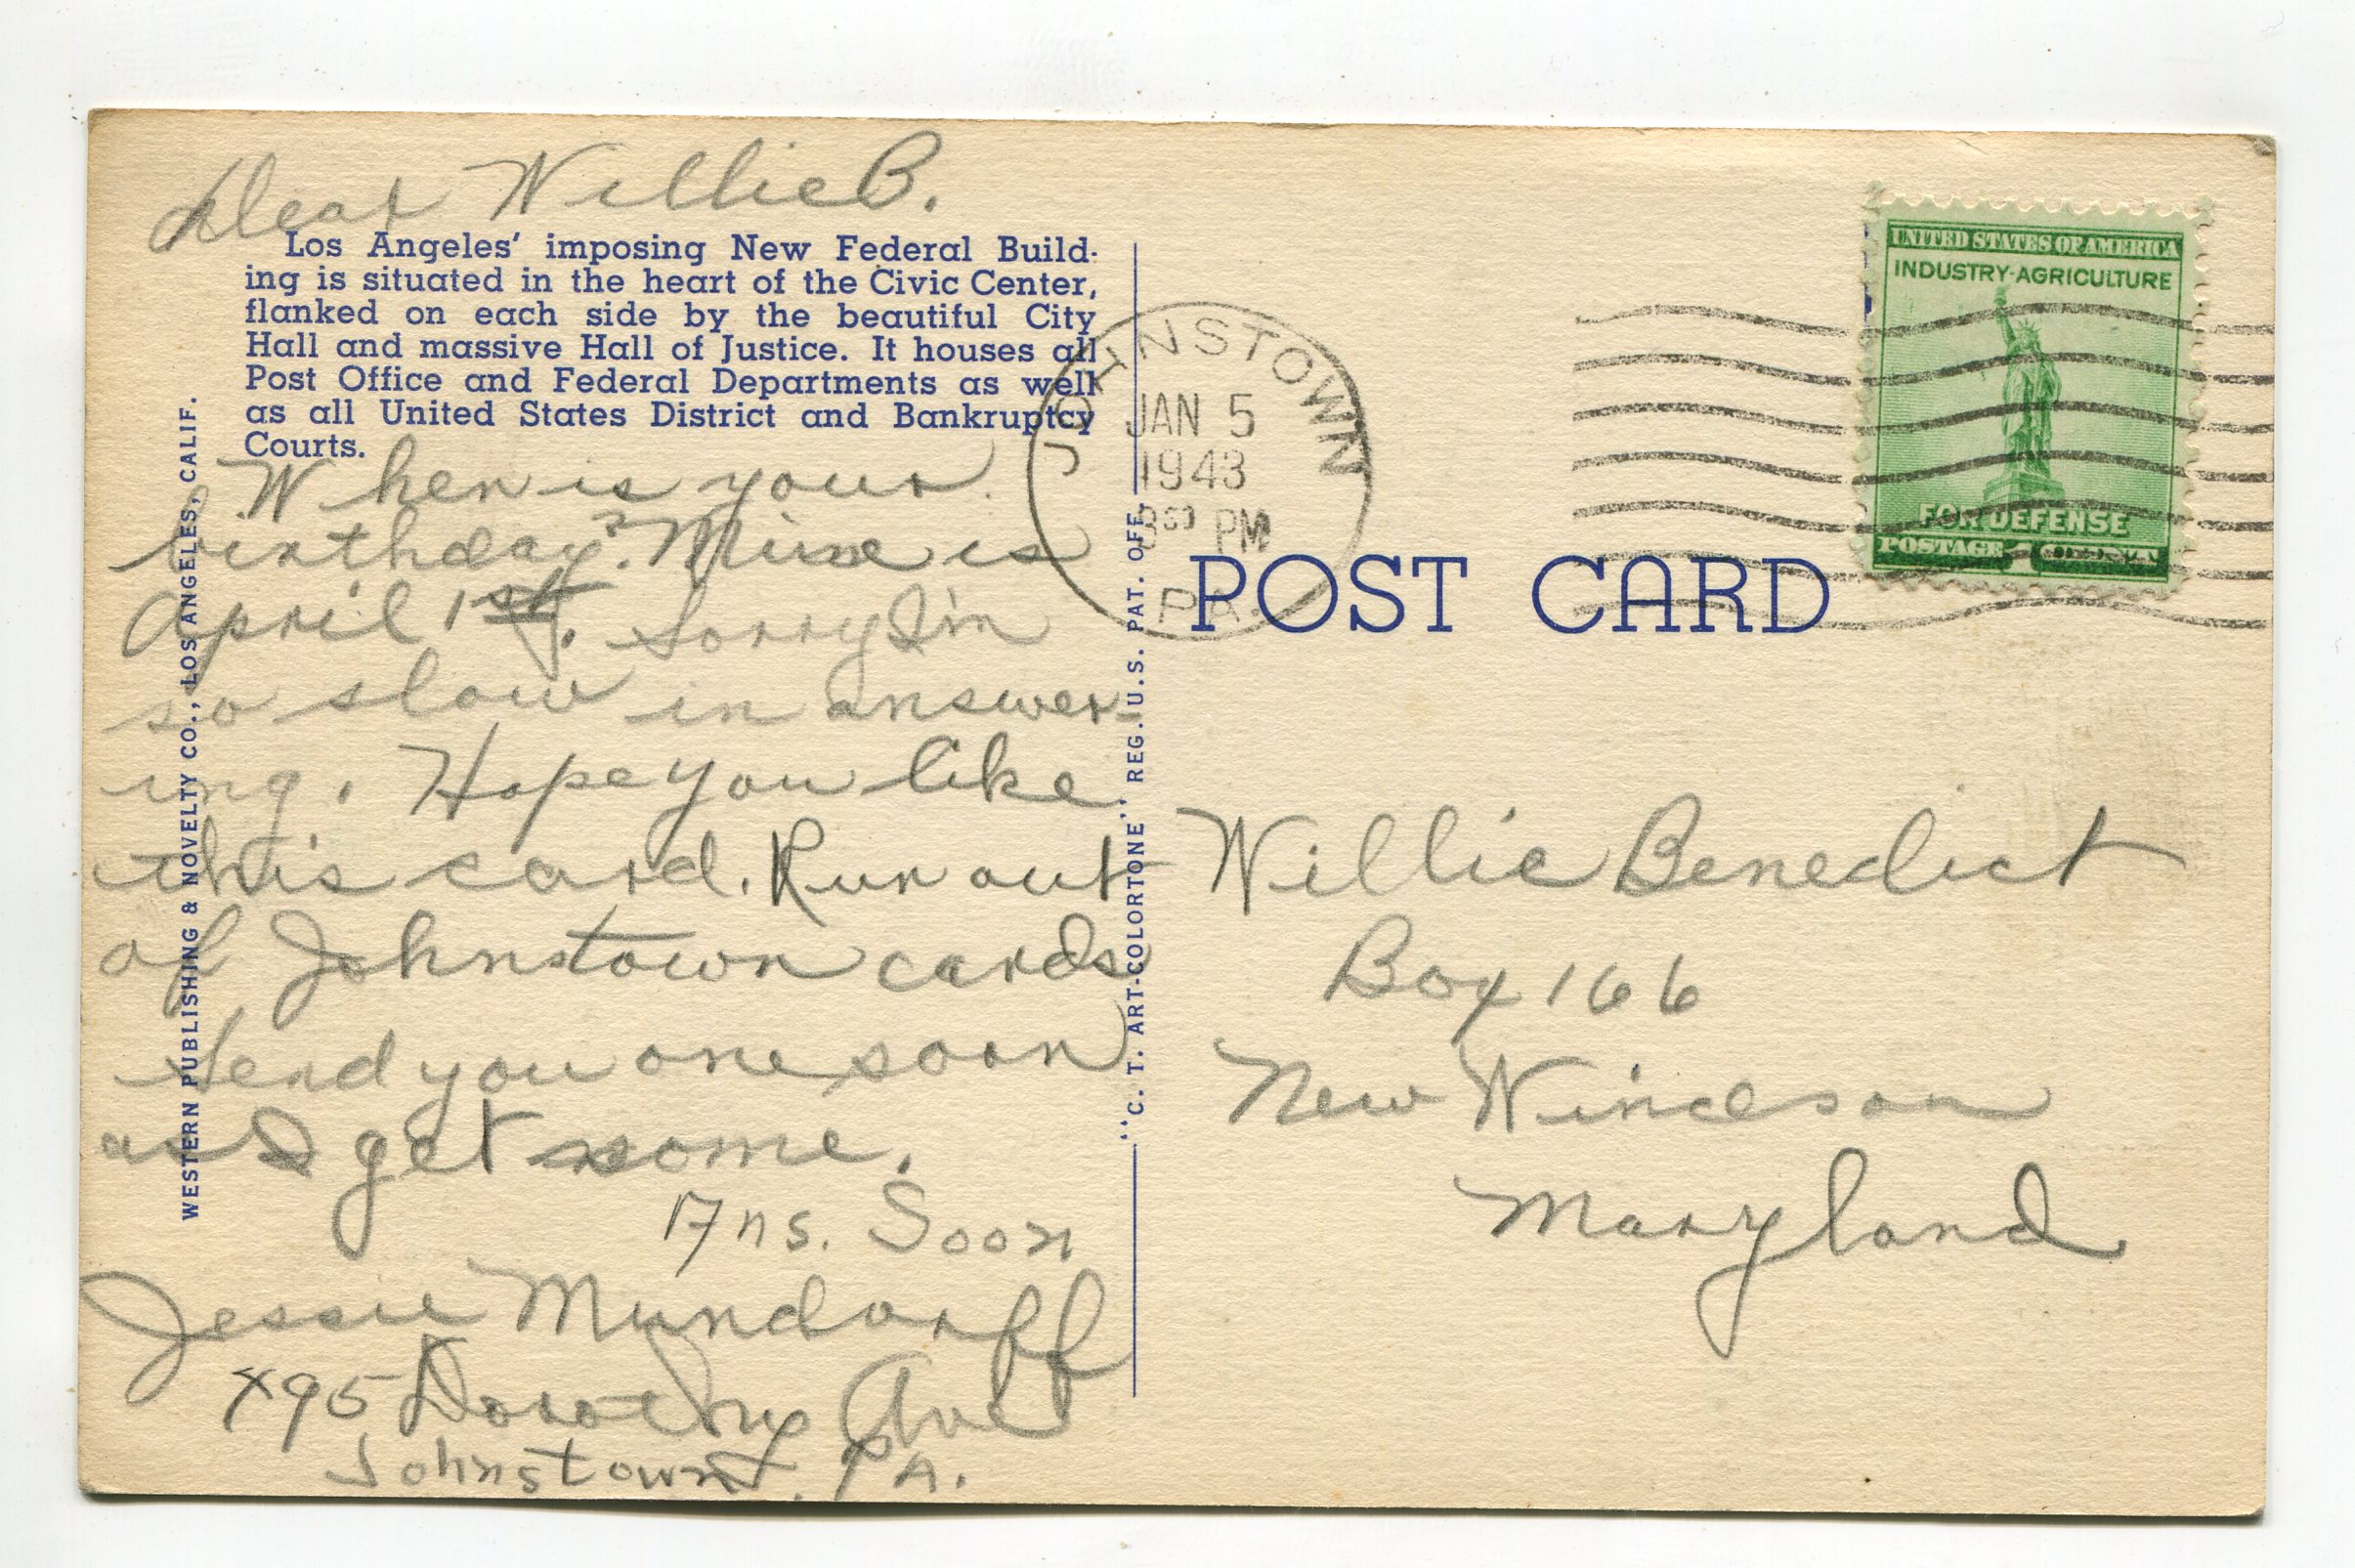 Dear Willie B.
Los Angeles' imposing New Federal Build-
ing is situated in the heart of the Civic Center,
flanked on each side by the beautiful City
Hall and massive Hall of Justice. It houses all
Post Office and Federal Departments as well
as all United States District and Bankruptcy
Courts.
When is your
birthday? Mine is
April 1st. Sorry I'm
so slow in answer-
ing. Hope you like
this card. Run out
of Johnstown cards
Send you one soon
as I get some.
Ans. Soon
Jessie Mundorff
Dorothy Ave
Johnstown, PA.
WESTERN PUBLISHING & NOVELTY CO., LOS ANGELES, CALIF.
"C. T. ART-COLORTONE" REG. U.S. PAT. OFF.
JOHNSTOWN
JAN 5
1943
PM
PA.
POST CARD
UNITED STATES OF AMERICA
INDUSTRY·AGRICULTURE
FOR DEFENSE
POSTAGE 1 CENT
Willie Benedict
Box 166
New Windson
Maryland